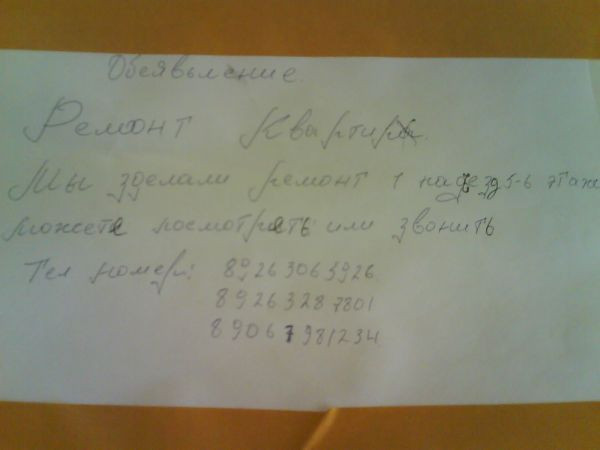 Обеявьление.
Ремонт Квартир.
Мы зделали ремонт 1 падьезд 5-6 этаж
можете посмотреть или звонить
Тел номер: 89263065926
89263287801
89067981234